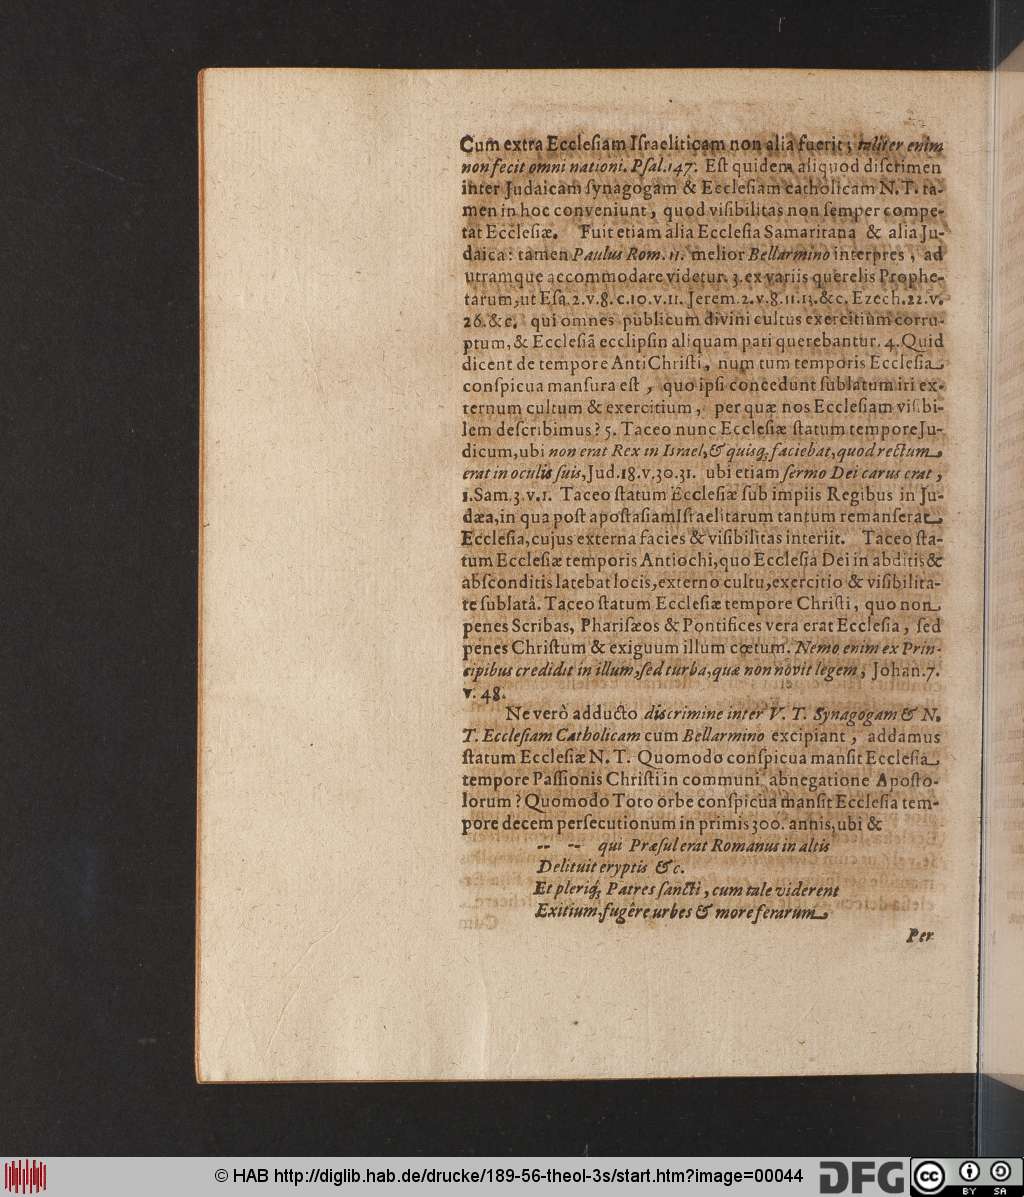 Cum extra Ecclesiam Israeliticam non alia fuerit; taliter enim
non fecit omni nationi. Psal. 147. Est quidem aliquod discrimen
inter Judaicam synagogam & Ecclesiam catholicam N. T. ta-
men in hoc conveniunt, quod visibilitas non semper compe-
tat Ecclesiæ. Fuit etiam alia Ecclesia Samaritana & alia Ju-
daica: tamen Paulus Rom. 11. melior Bellarmino interpres, ad
utramque accommodare videtur. 3. ex variis querelis Prophe-
tarum, ut Esa. 2. v. 8. c. 10. v. 11. Jerem. 2. v. 8. 11. 13. &c. Ezech. 22. v.
26. &c. qui omnes publicum divini cultus exercitium corru-
ptum, & Ecclesiã ecclipsin aliquam pati querebantur. 4. Quid
dicent de tempore AntiChristi, num tum temporis Ecclesia
conspicua mansura est, quo ipsi concedunt sublatum iri ex-
ternum cultum & exercitium, per quæ nos Ecclesiam visibi-
lem describimus? 5. Taceo nunc Ecclesiæ statum tempore Ju-
dicum, ubi non erat Rex in Israel, & quisq; faciebat, quod rectum
erat in oculis suis, Jud. 18. v. 30. 31. ubi etiam sermo Dei carus erat,
1. Sam. 3. v. 1. Taceo statum Ecclesiæ sub impiis Regibus in Ju-
dæa, in qua post apostasiam Israelitarum tantum remanserat
Ecclesia, cujus externa facies & visibilitas interiit. Taceo sta-
tum Ecclesiæ temporis Antiochi, quo Ecclesia Dei in abditis &
absconditis latebat locis, externo cultu, exercitio & visibilita-
te sublatâ. Taceo statum Ecclesiæ tempore Christi, quo non
penes Scribas, Pharisæos & Pontifices vera erat Ecclesia, sed
penes Christum & exiguum illum cœtum. Nemo enim ex Prin-
cipibus credidit in illum, sed turba, quæ non novit legem, Johan. 7.
v. 48.
Ne verò adducto discrimine inter V. T. Synagogam & N.
T. Ecclesiam Catholicam cum Bellarmino excipiant, addamus
statum Ecclesiæ N. T. Quomodo conspicua mansit Ecclesia
tempore Passionis Christi in communi abnegatione Aposto-
lorum? Quomodo Toto orbe conspicua mansit Ecclesia tem-
pore decem persecutionum in primis 300. annis, ubi &
-- -- qui Præsul erat Romanus in altis
Delituit cryptis &c.
Et pleriq; Patres sancti, cum tale viderent
Exitium, fugêre urbes & more ferarum
Per
© HAB http://diglib.hab.de/drucke/189-56-theol-3s/start.htm?image=00044
DFG
cc
BY SA